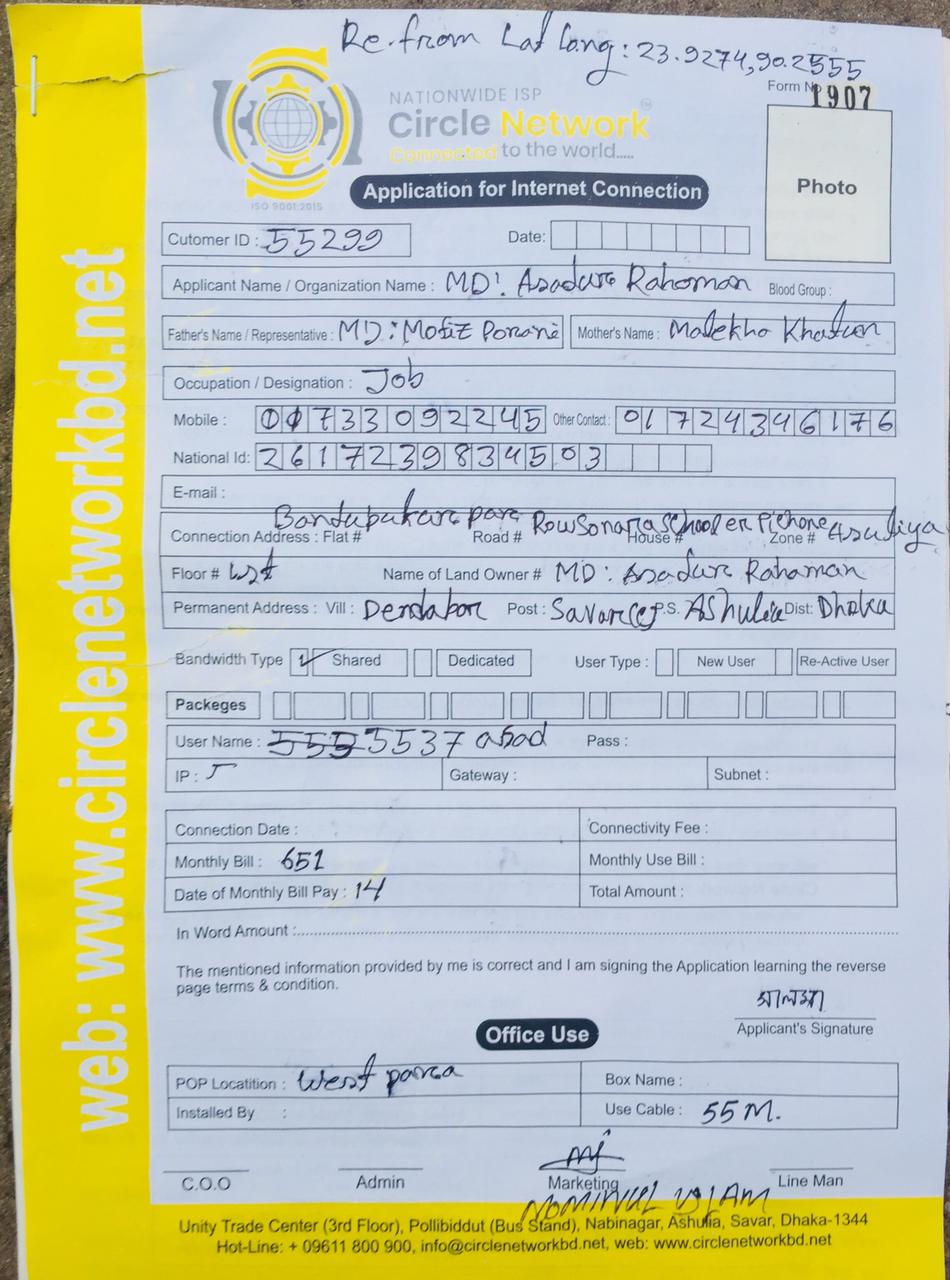 Re. from Lat Long: 23.9274,90.2555
Form No 1907
NATIONWIDE ISP
Circle Network
Connected to the world.....
ISO 9001:2015
Photo
Application for Internet Connection
Cutomer ID : 55299 Date:
Applicant Name / Organization Name : MD: Asadure Rahoman Blood Group :
Father's Name / Representative : MD: Mofiz Porane Mother's Name : Malekha Khatun
Occupation / Designation : Job
Mobile : 01733092245 Other Contact : 01724346176
National Id: 2617239834503
E-mail :
Bandubukare para Rowsonara School er Pichone Asuliya
Connection Address : Flat # Road # House # Zone #
Floor # 1st Name of Land Owner # MD: Asadure Rahaman
Permanent Address : Vill : Dendabor Post : Savar P.S. Ashulia Dist: Dhaka
Bandwidth Type ✓ Shared Dedicated User Type : New User Re-Active User
Packeges
User Name : 5537 asad Pass :
IP : Gateway : Subnet :
Connection Date : Connectivity Fee :
Monthly Bill : 651 Monthly Use Bill :
Date of Monthly Bill Pay : 14 Total Amount :
In Word Amount :
The mentioned information provided by me is correct and I am signing the Application learning the reverse
page terms & condition.
Applicant's Signature
Office Use
POP Locatition : West parea Box Name :
Installed By : Use Cable : 55 M.
C.O.O Admin Marketing Line Man
MOMINUL ISLAM
Unity Trade Center (3rd Floor), Pollibiddut (Bus Stand), Nabinagar, Ashulia, Savar, Dhaka-1344
Hot-Line: + 09611 800 900, info@circlenetworkbd.net, web: www.circlenetworkbd.net
web: www.circlenetworkbd.net